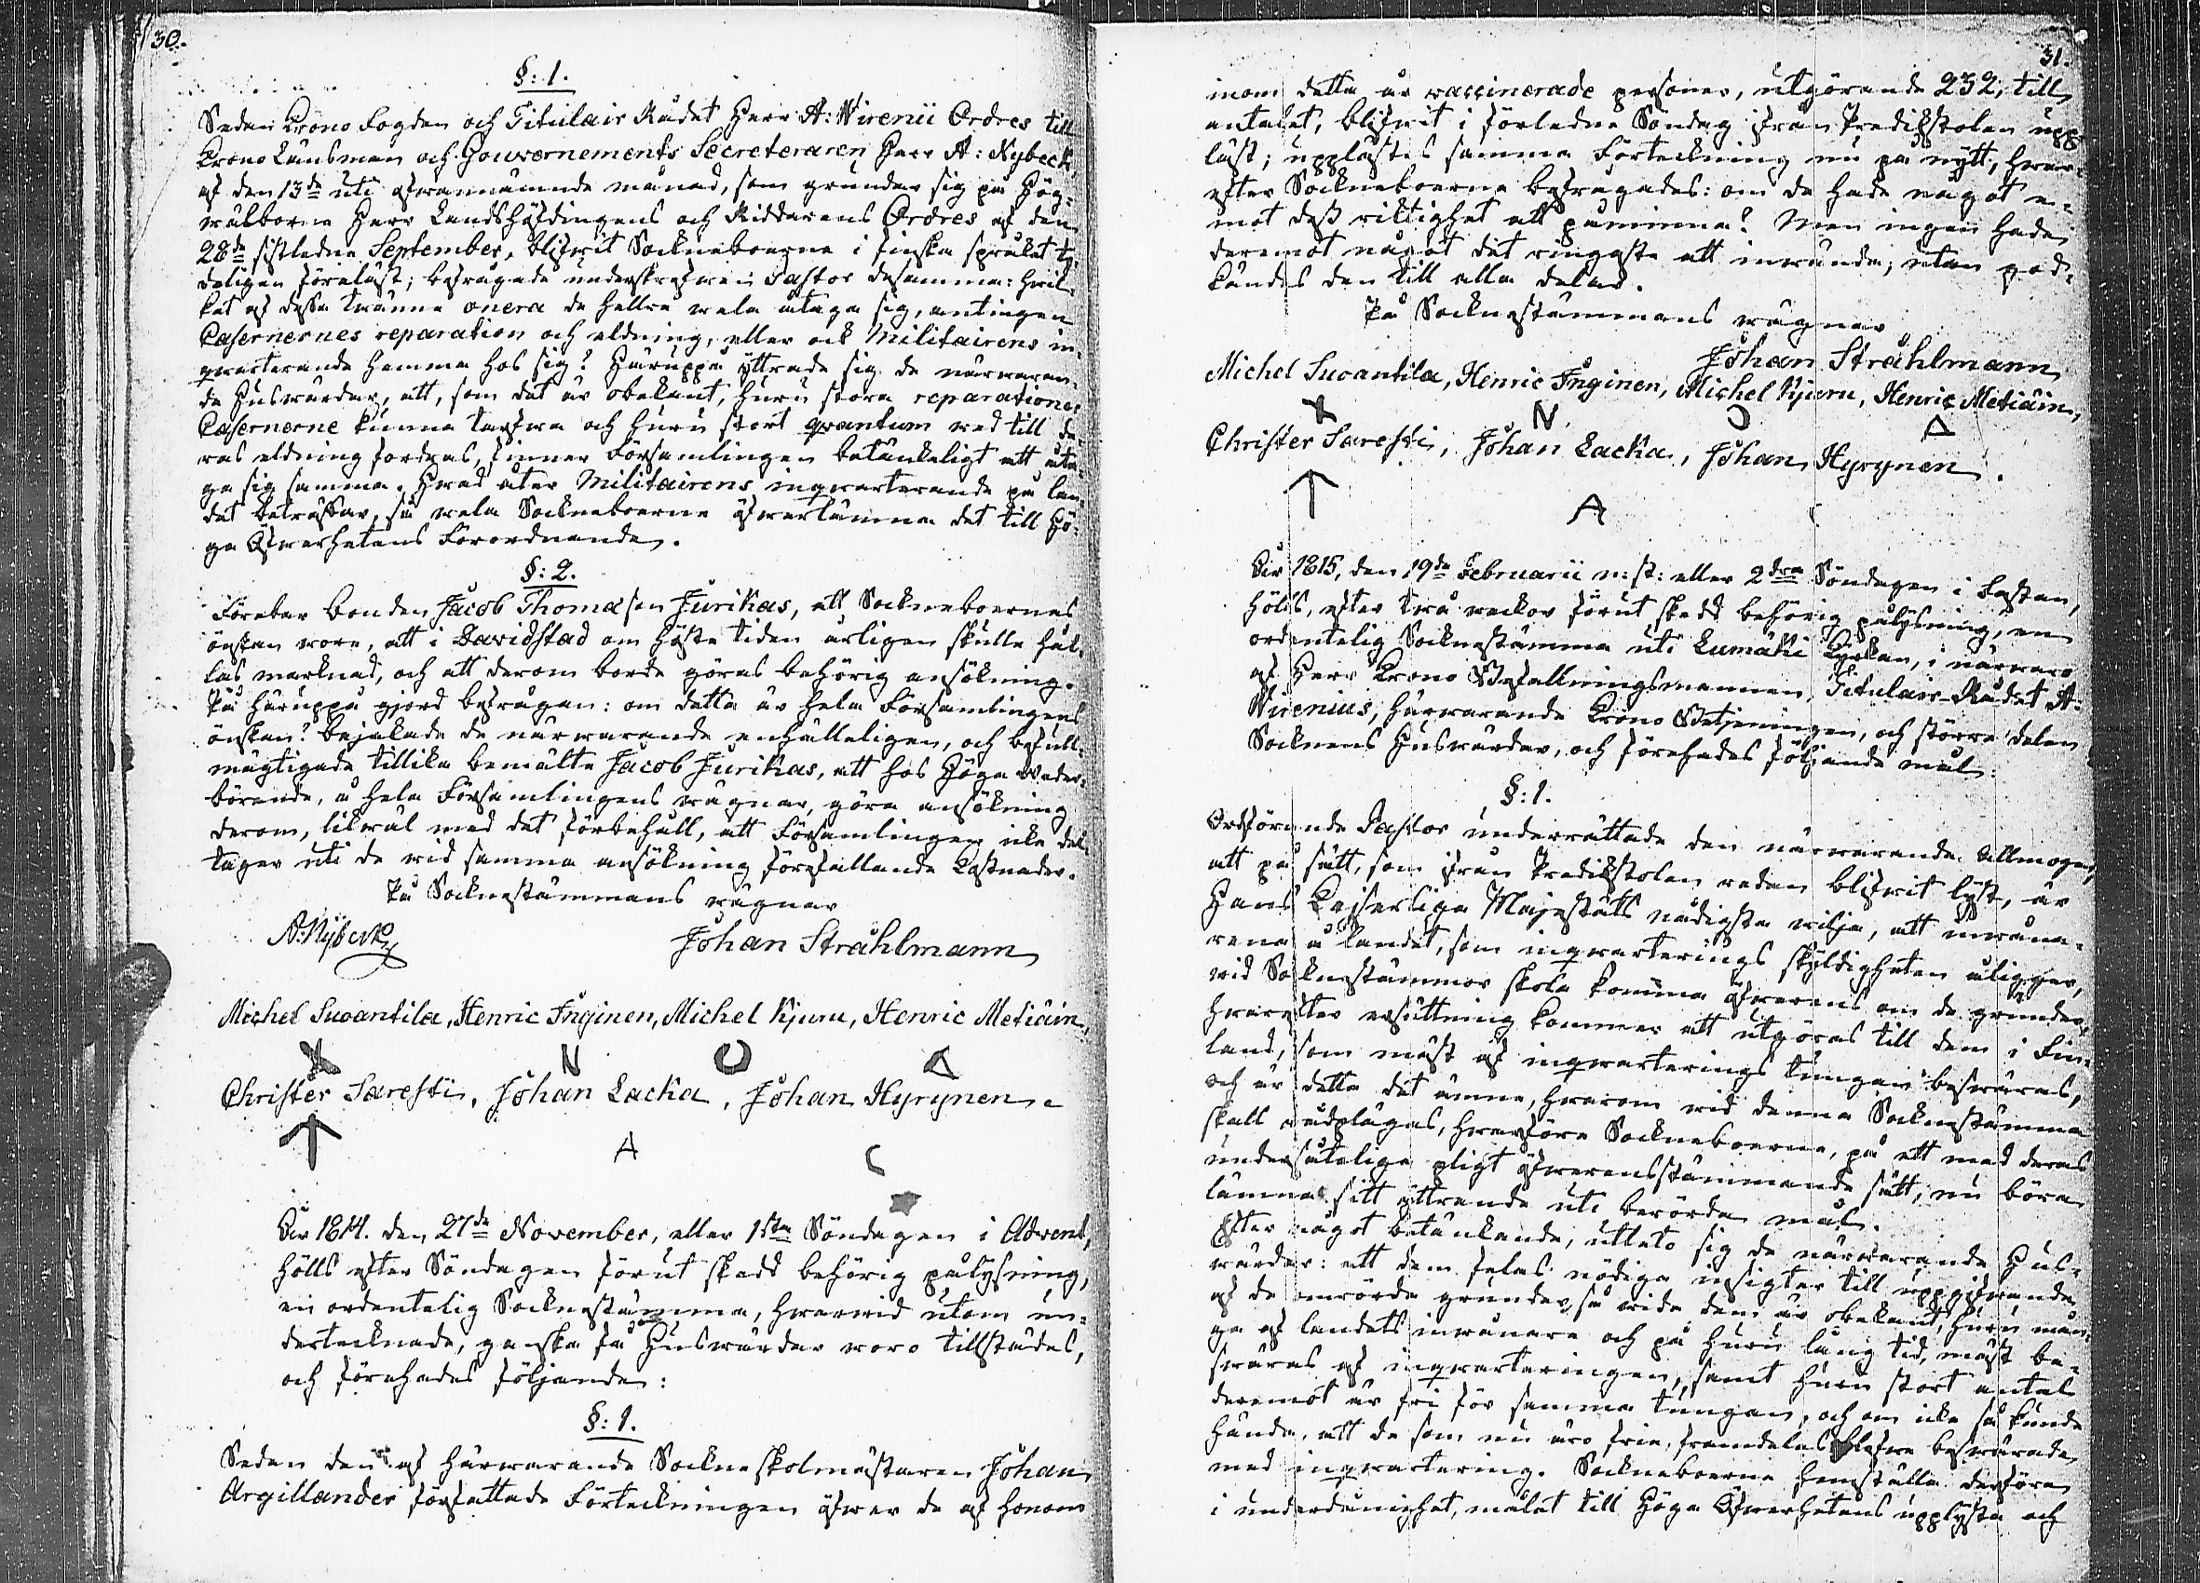 30.
§: 1.
Sedan Krono Fogden och Titulair Rådet Herr A: Wirenii Ordres till
Krono Länsman och Gouvernements Secreteraren Herr A: Nybeck
af den 13de uti ofwannämnde månad, som grundar sig på Hög-
wälborne Herr Landshöfdingens och Riddarens Ordres af den
28de sistledne September, blifwit Sockneboerne i finska språket ty-
deligen föreläst; befrågade underskrefwen Pastor desamma: hwil-
ket af dessa twänne onera de hellre wela åtaga sig, antingen
Casernernes reparation och eldning, eller ock Militairens in-
qwarterande hemma hos sig? Häruppå yttrade sig de närwaran-
de Huswärdar, att, som det är obekant, huru stora reparationer
Casernerne kunna tarfwa och huru stort qvantum wed till de-
ras eldning fordras, finner Församlingen betänkeligt att åta-
ga sig samma. Hwad åter Militairens inqwarterande på lan-
det beträffar, så wela Sockneboerne öfwerlämna det till Hö-
ga Öfwerhetens Förordnande.
§: 2.
Förebar bonden Jacob Thomasson Jurikas, att Sockneboernes
önskan wore, att i Davidstad om höste tiden årligen skulle hål-
las marknad, och att derom borde göras behörig ansökning.
På häruppå gjord befrågan: om detta är hela Församlingens
önskan? bejakade de närwarande enhälleligen, och befull-
mägtigade tillika bemälte Jacob Jurikas, att hos Höga Weder-
börande, å hela Församlingens wägnar, göra ansökning
derom, likwäl med det förbehåll, att Församlingen icke del-
tager uti de wid samma ansökning förefallande Kostnader.
På Socknestämmans wägnar
A: Nybeck
Johan Stråhlmann
Michel Suoantila, Henric Inginen, Michel Kjuru, Henric Metiäin,
X N U Δ
Christer Saresti, Johan Lacka, Johan Hyrynen.
↑ A C
År 1814. den 27de November, eller 1sta Söndagen i Advent,
hölls efter Söndagen förut skedd behörig pålysning,
en ordentelig Socknestämma, hwarwid utom un-
dertecknade, ganska få Huswärdar woro tillstädes,
och förehades följande:
§: 1.
Sedan den af härwarande Sockneskolmästaren Johan
Argillander författade Förteckningen öfwer de af honom
31.
inom detta år vaccinerade personer, utgörande 232, till
antalet, blifwit i förledne Söndag ifrån Predikstolen upp-
läst; upplästes samma Förteckning nu på nytt, hwar-
efter Sockneboerne befrågades: om de hade något e-
mot dess riktighet att påminna? Men ingen hade
deremot något det ringaste att inwända, utan god-
kändes den till alla delar.
På Socknestämmans wägnar
Johan Stråhlmann
Michel Suoantila, Henric Inginen, Michel Kjuru, Henric Metiäin,
X N U Δ
Christer Saresti, Johan Lacka, Johan Hyrynen.
↑ A C
År 1815, den 19de Februarii n: st: eller 2dra Söndagen i Fastan,
hölls, efter twå weckor förut skedd behörig pålysning, en
ordentelig Socknestämma uti Lumäki Kyrkan, i närwaro
af Herr Krono Befallningsmannen, Titulair-Rådet A:
Wirenius, härwarande Krono Betjeningen, och större delen
Socknens Huswärdar, och förehades följande mål:
§: 1.
Ordförande Pastor underrättade den närwarande Allmogen,
att på sätt, som ifrån Predikstolen redan blifwit lyst, är
Hans Kejserliga Majestäts nådigste wilja, att inwåna-
rena å landet, som inqwarterings skyldigheten åligger,
wid Socknestämmor skola komma öfwerens om de grunder,
hwarefter ersättning kommer att utgöras till dem i Fin-
land, som mäst af inqwarterings tungan beswäras,
och är detta det ämne, hwarom wid denna Socknestämma
skall rådplägas, hwarföre Sockneboerne, på ett med deras
undersåtelige pligt öfwerensstämmande sätt, nu böra
lämna sitt yttrande uti berörda mål.
Efter något betänkande, utläto sig de närwarande Hus-
wärdar: att dem felas nödige insigter till uppgifwande
af de omrörde grunder, så wida dem är obekant, huru mån-
ge af landets inwånare och på huru lång tid, mäst be-
swäras af inqwarteringen, samt huru stort antal
deremot är fri för samma tungan, och om icke så kunde
hända, att de som nu äro frie, framdeles blefwe beswärade
med inqwartering. Sockneboerne hemställa derföre
i underdånighet, målet till Höga Öfwerhetens upplysta och